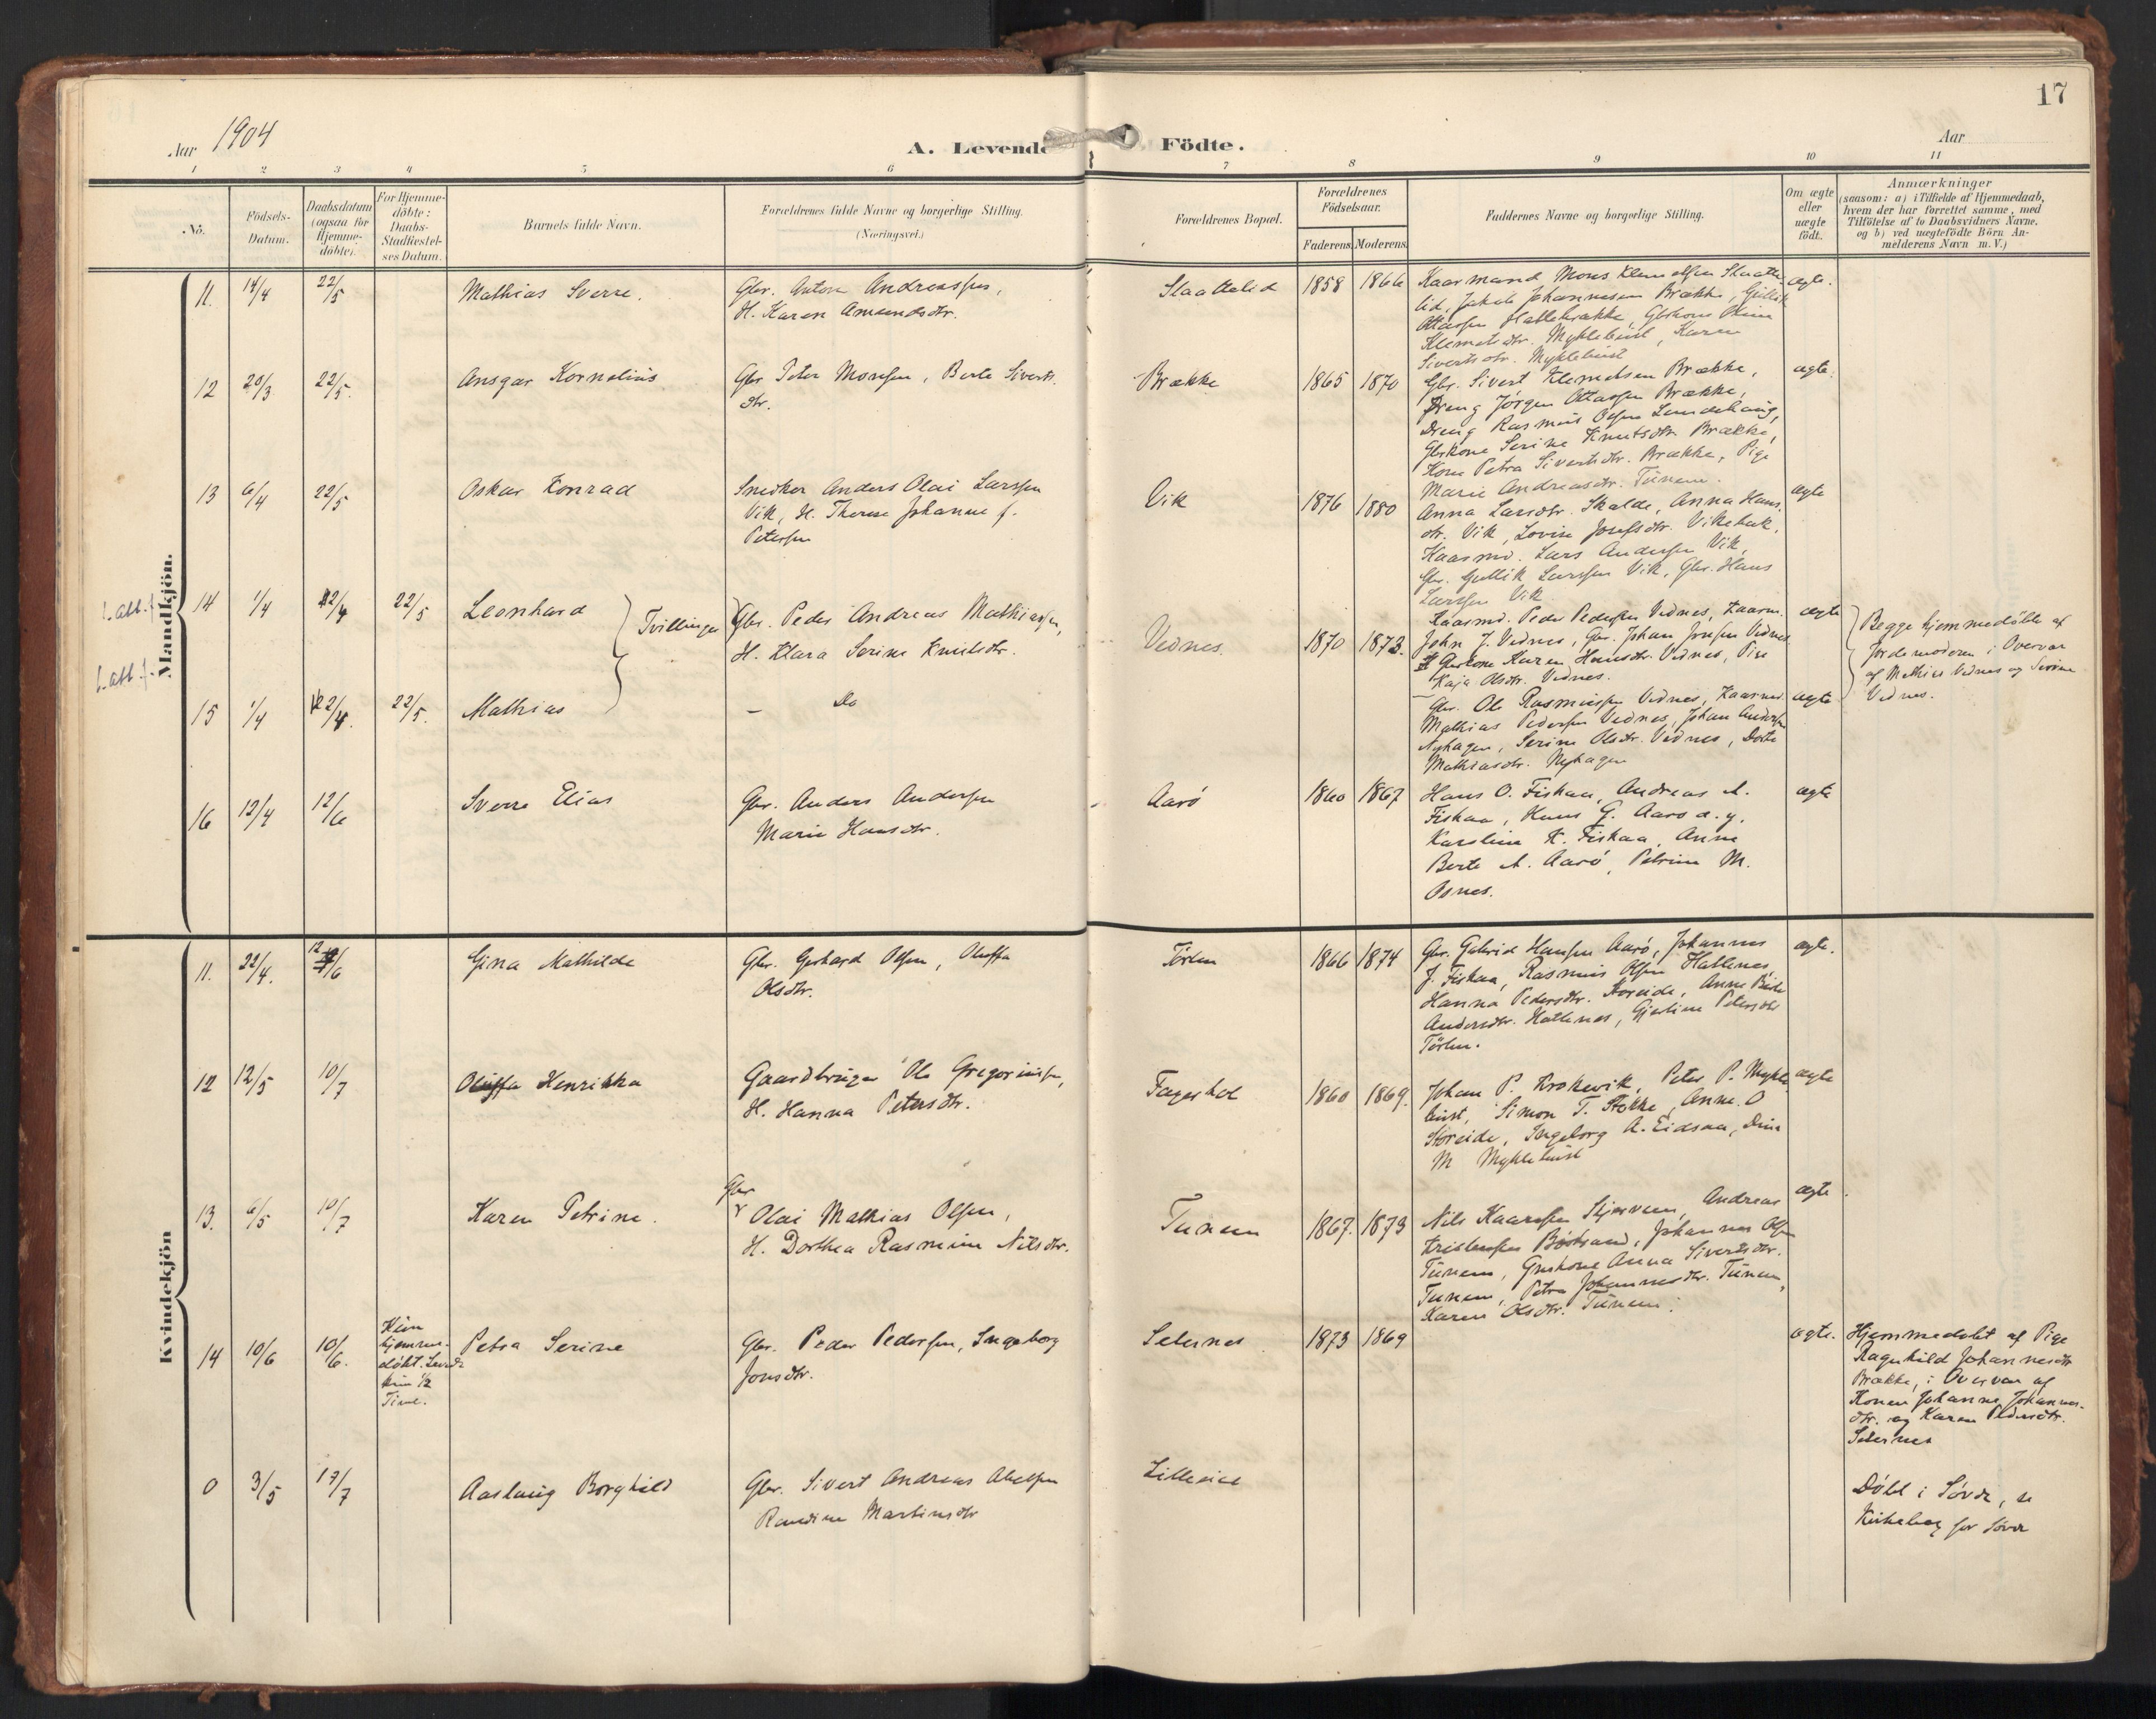 17
Aar 1904
A. Levende Födte.
Aar
1 2 3 4 5 6 7 8 9 10 11
No.
Födsels-Datum.
Daabsdatum (ogsaa for Hjemme-döbte).
For Hjemme-döbte: Daabs-Stadfæstel-ses Datum.
Barnets fulde Navn.
Forældrenes fulde Navne og borgerlige Stilling. (Næringsvei.)
Forældrenes Bopæl.
Forældrenes Födselsaar.
Faderens. Moderens.
Faddernes Navne og borgerlige Stilling.
Om ægte eller uægte födt.
Anmærkninger
(saasom: a) i Tilfælde af Hjemmedaab,
hvem der har forrettet samme, med
Tilföielse af to Daabsvidners Navne.
og b) ved uægtefödte Börn An-
melderens Navn m. V.)
Mandkjön.
11. 14/4 22/5 Mathias Sverre.
Gbr. Anton Andreassen,
H. Karen Amundsdtr.
Slaattelid 1858 1866
Kaarmand Mons Klemetsen Slaatte-
lid, Jakob Johannesen Brække,
Klemetsdtr. Myklebust, Karen
Sivertsdtr. Myklebust
ægte.
12 20/3 22/5. Ansgar Kornelius
Gbr Peter Monsen, Berte Siverts
dtr.
Brække 1865 1870
Gbr. Sivert Klemetsen Brække,
Dreng Jörgen Ottassen Brække,
Dreng Rasmus Olsen Lundehaug,
Gbrkone Serine Knutsdtr Brække,
Kone Petra Sivertsdtr. Brække, Pige
Marie Andreasdtr. Tunem.
ægte.
13 6/4 22/5 Oskar Konrad
Snedker Anders Olai Larssen
Vik, H. Therese Johanne f.
Petersen
Vik 1876 1880
Anna Larsdtr. Skalde, Anna Hans-
dtr. Vik, Lovise Josefsdtr. Vikebuk,
Kaarmd. Lars Andersen Vik,
Gbr. Gullik Larssen Vik, Gbr. Hans
Larssen Vik
ægte
14 1/4 12/4 22/5 Leonhard
Tvillinger
Gbr. Peder Andreas Mathiassen,
H. Klara Serine Knutsdtr.
Vednes. 1870 1873.
Kaarmd. Peder Pedersen Vednes, Kaarm.
John J. Vednes, Gbr. Johan Jonsen Vednes
Gbrkone Karen Hansdtr. Vednes, Pige
Kaja Olsdtr. Vednes.
ægte
Begge hjemmedöbte af
Jordemoderen i Overvær
af Mathias Vednes og Serine
Vednes.
15 1/4 12/4. 22/5. Mathias
— Do
—
Gbr. Ole Rasmussen Vednes, Kaarmd
Mathias Pedersen Vednes, Johan Andersen
Nyhagen, Serine Olsdtr. Vednes, Dorte
Mathiasdtr. Nyhagen
ægte
16 12/4 12/6 Sverre Elias
Gbr. Anders Andersen
Marie Hansdtr.
Aarö 1860 1867
Hans O. Fiskaa, Andreas A.
Fiskaa, Hans G. Aarö d.y.
Karoline K. Fiskaa, Anne
Berte A. Aarö, Petrine M.
Osnes.
ægte
Kvindekjön
11. 22/4. 12/6 Gina Mathilde
Gbr. Gerhard Olsen, Oluffa
Olsdtr.
Törlen 1866 1874
Gbr. Gabriel Hansen Aarö, Johannes
J. Fiskaa, Rasmus Olsen Hallenes,
Hanna Pedersdtr. Storeide, Anne Berte
Andersdtr. Hatlenes, Gjertine Petersdtr
Törlen.
ægte.
12 12/5 10/7 Oluffa Henrikka
Gaardbruger Ole Gregoriussen,
H. Hanna Petersdtr.
Fagerhol 1860 1869.
Johan P. Krokevik, Peter P. Mykle-
bust, Simon T. Stokke, Anne O
Storeide, Ingeborg A. Eidsaa, Dina
M Myklebust
ægte
13. 6/5 10/7 Karen Petrine.
Gbr
Olai Mathias Olsen,
H. Dorthea Rasmine Nilsdtr.
Tunem 1867. 1873
Nils Kaaresen Stjervem, Andreas
Kristensen Böstrand, Johannes Olsen
Tunem, Gbrkone Anna Sivertsdtr.
Tunem, Petra Johannesdtr. Tunem,
Karen Olsdtr. Tunem.
ægte.
14 10/6 10/6.
Kun
hjemme-
döbt. Levede
kun 1/2
Time.
Petra Serine
Gbr. Peder Pedersen, Ingeborg
Jonsdtr.
Seternes 1873 1869
ægte.
Hjemmedöbt af Pige
Ragnhild Johannesdtr
Brække, i Overvær af
Konen Johanne Johannes-
dtr. og Karen Pedersdtr.
Seternes
0 3/5 17/7 Aaslaug Borghild
Gbr. Sivert Andreas Abelsen
Randine Martinsdtr
Lilleeid
Döbt i Sövde, se
Kirkebog for Sövde